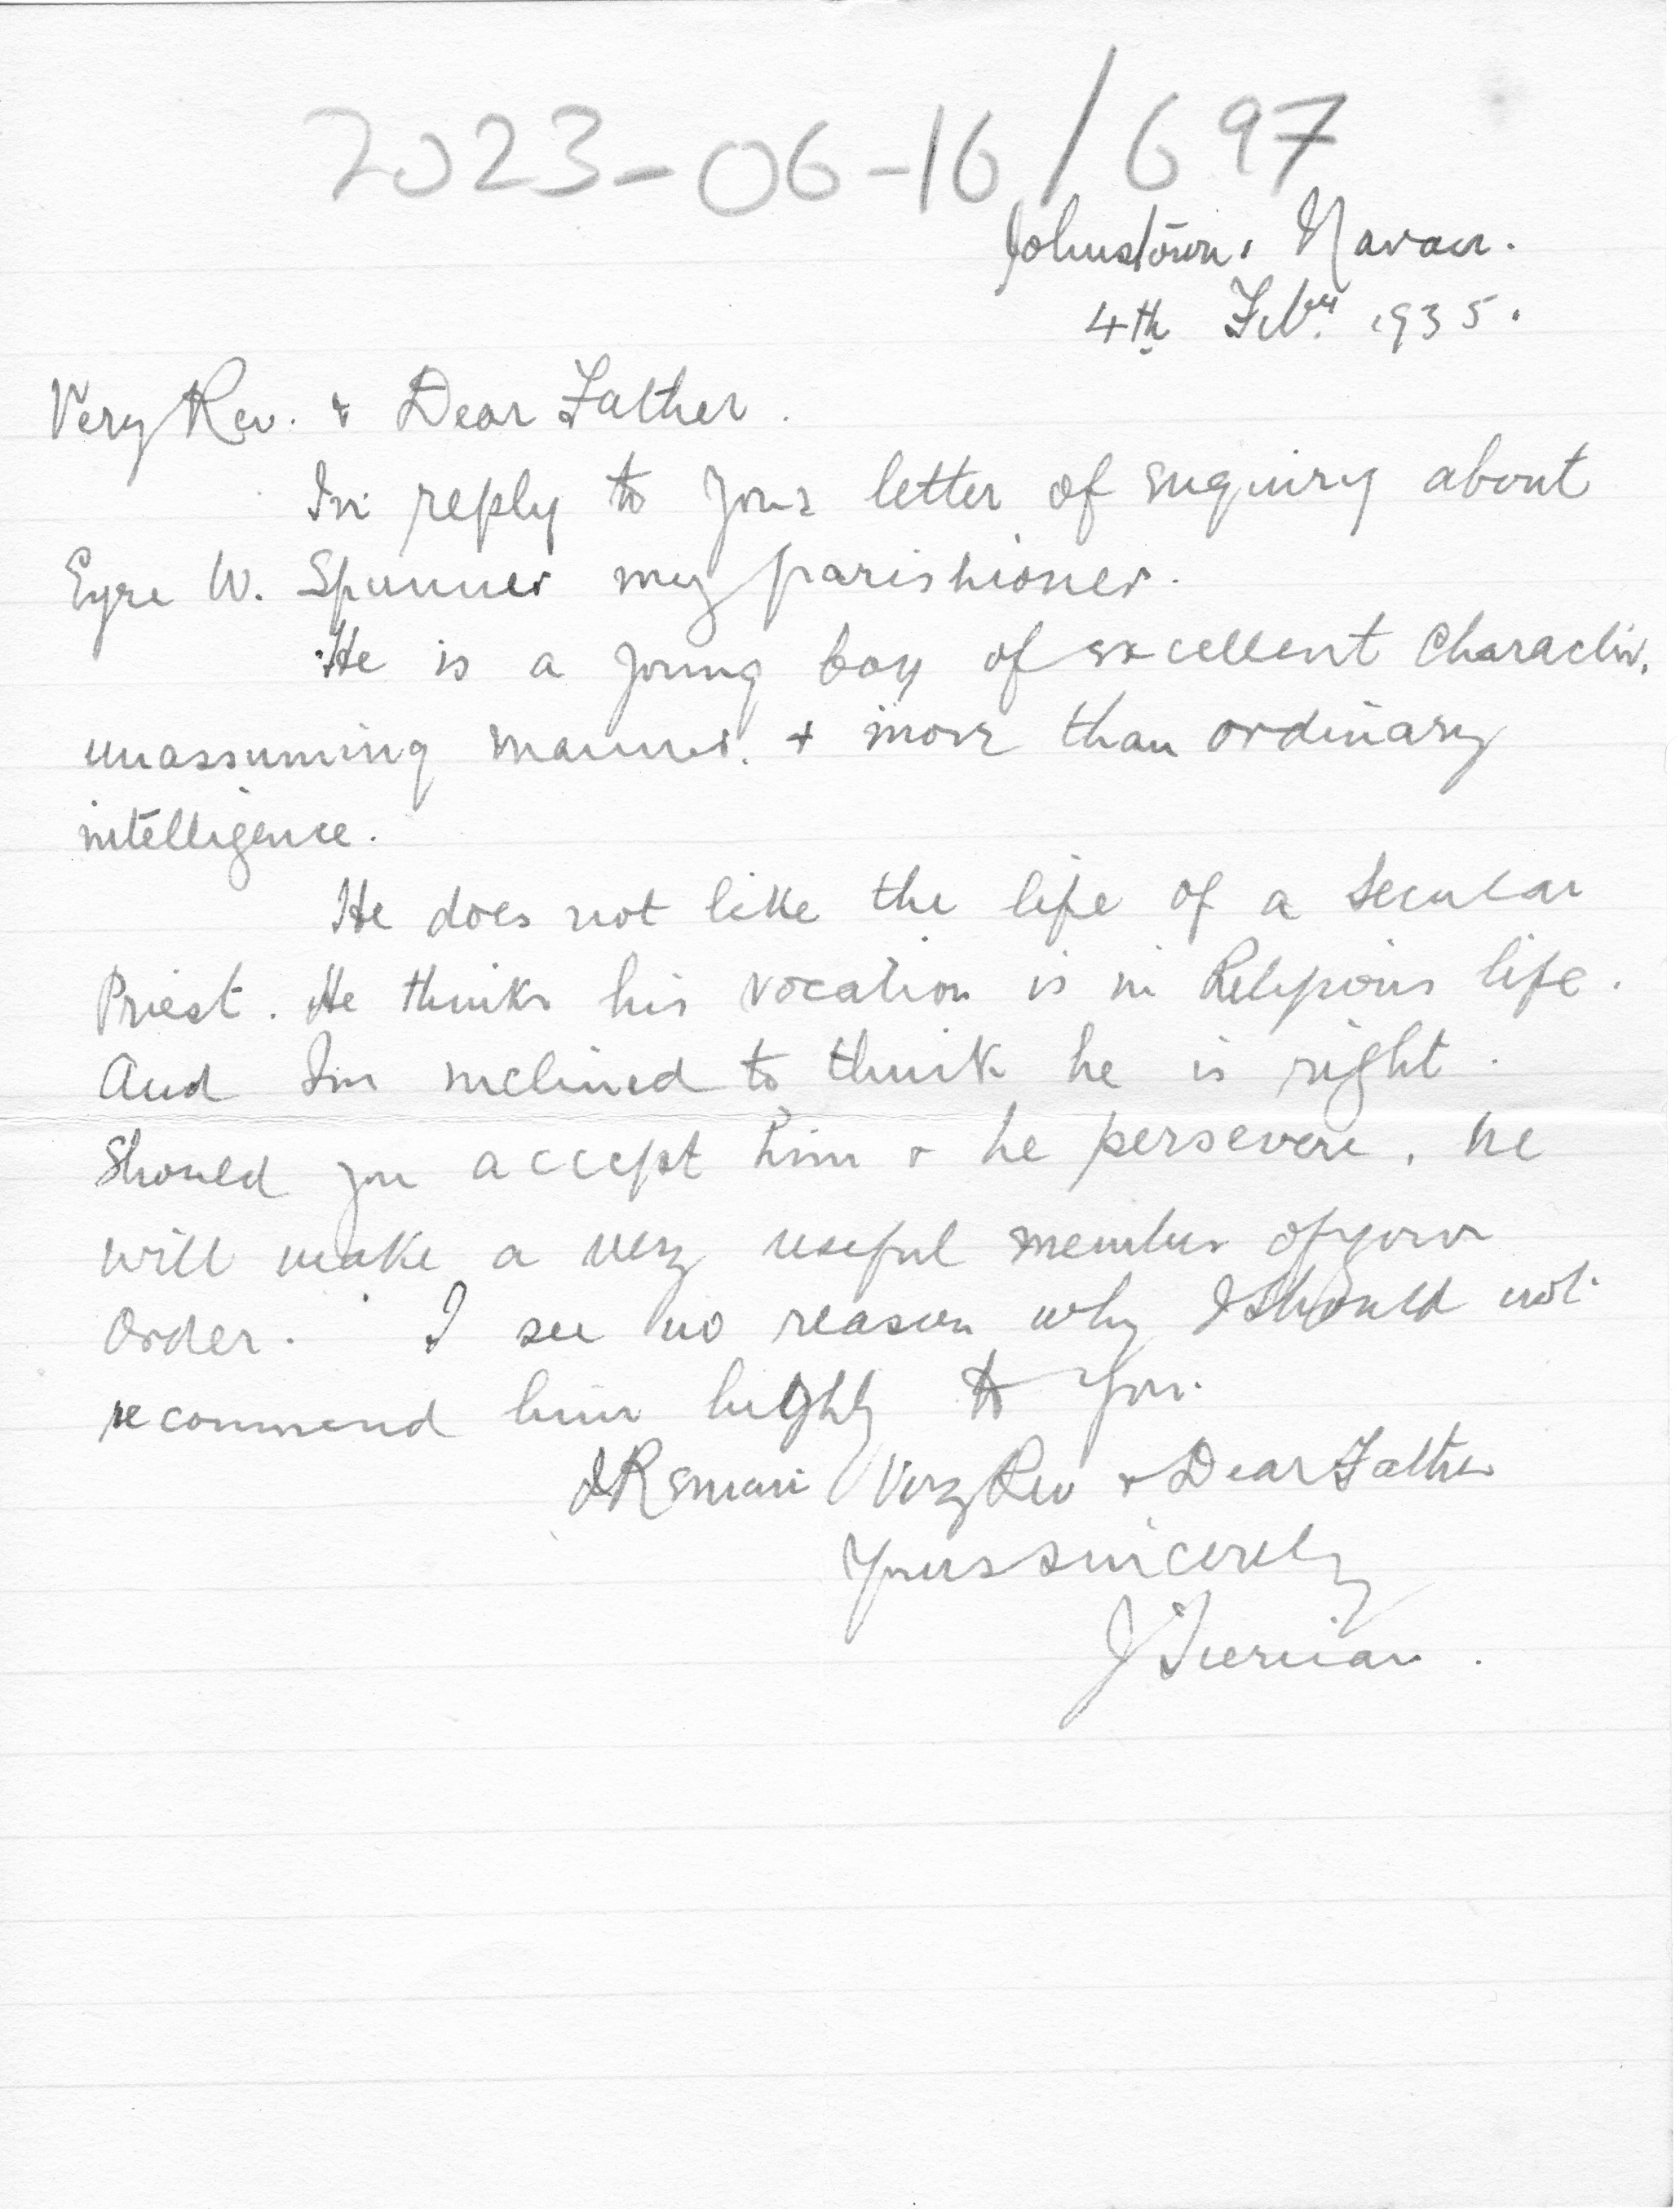 2023-06-16/697
Johnstown, Navan.
4th Feby. 1935.
Very Rev. & Dear Father.
In reply to your letter of enquiry about
Eyre W. Spunner my parishioner.
He is a young boy of excellent character,
unassuming manner, & more than ordinary
intelligence.
He does not like the life of a Secular
Priest. He thinks his vocation is in Religious life.
And I'm inclined to think he is right.
Should you accept him & he persevere, he
will make a very useful member of your
Order. I see no reason why I should not
recommend him highly to you.
I Remain Very Rev & Dear Father
Yours sincerely
J